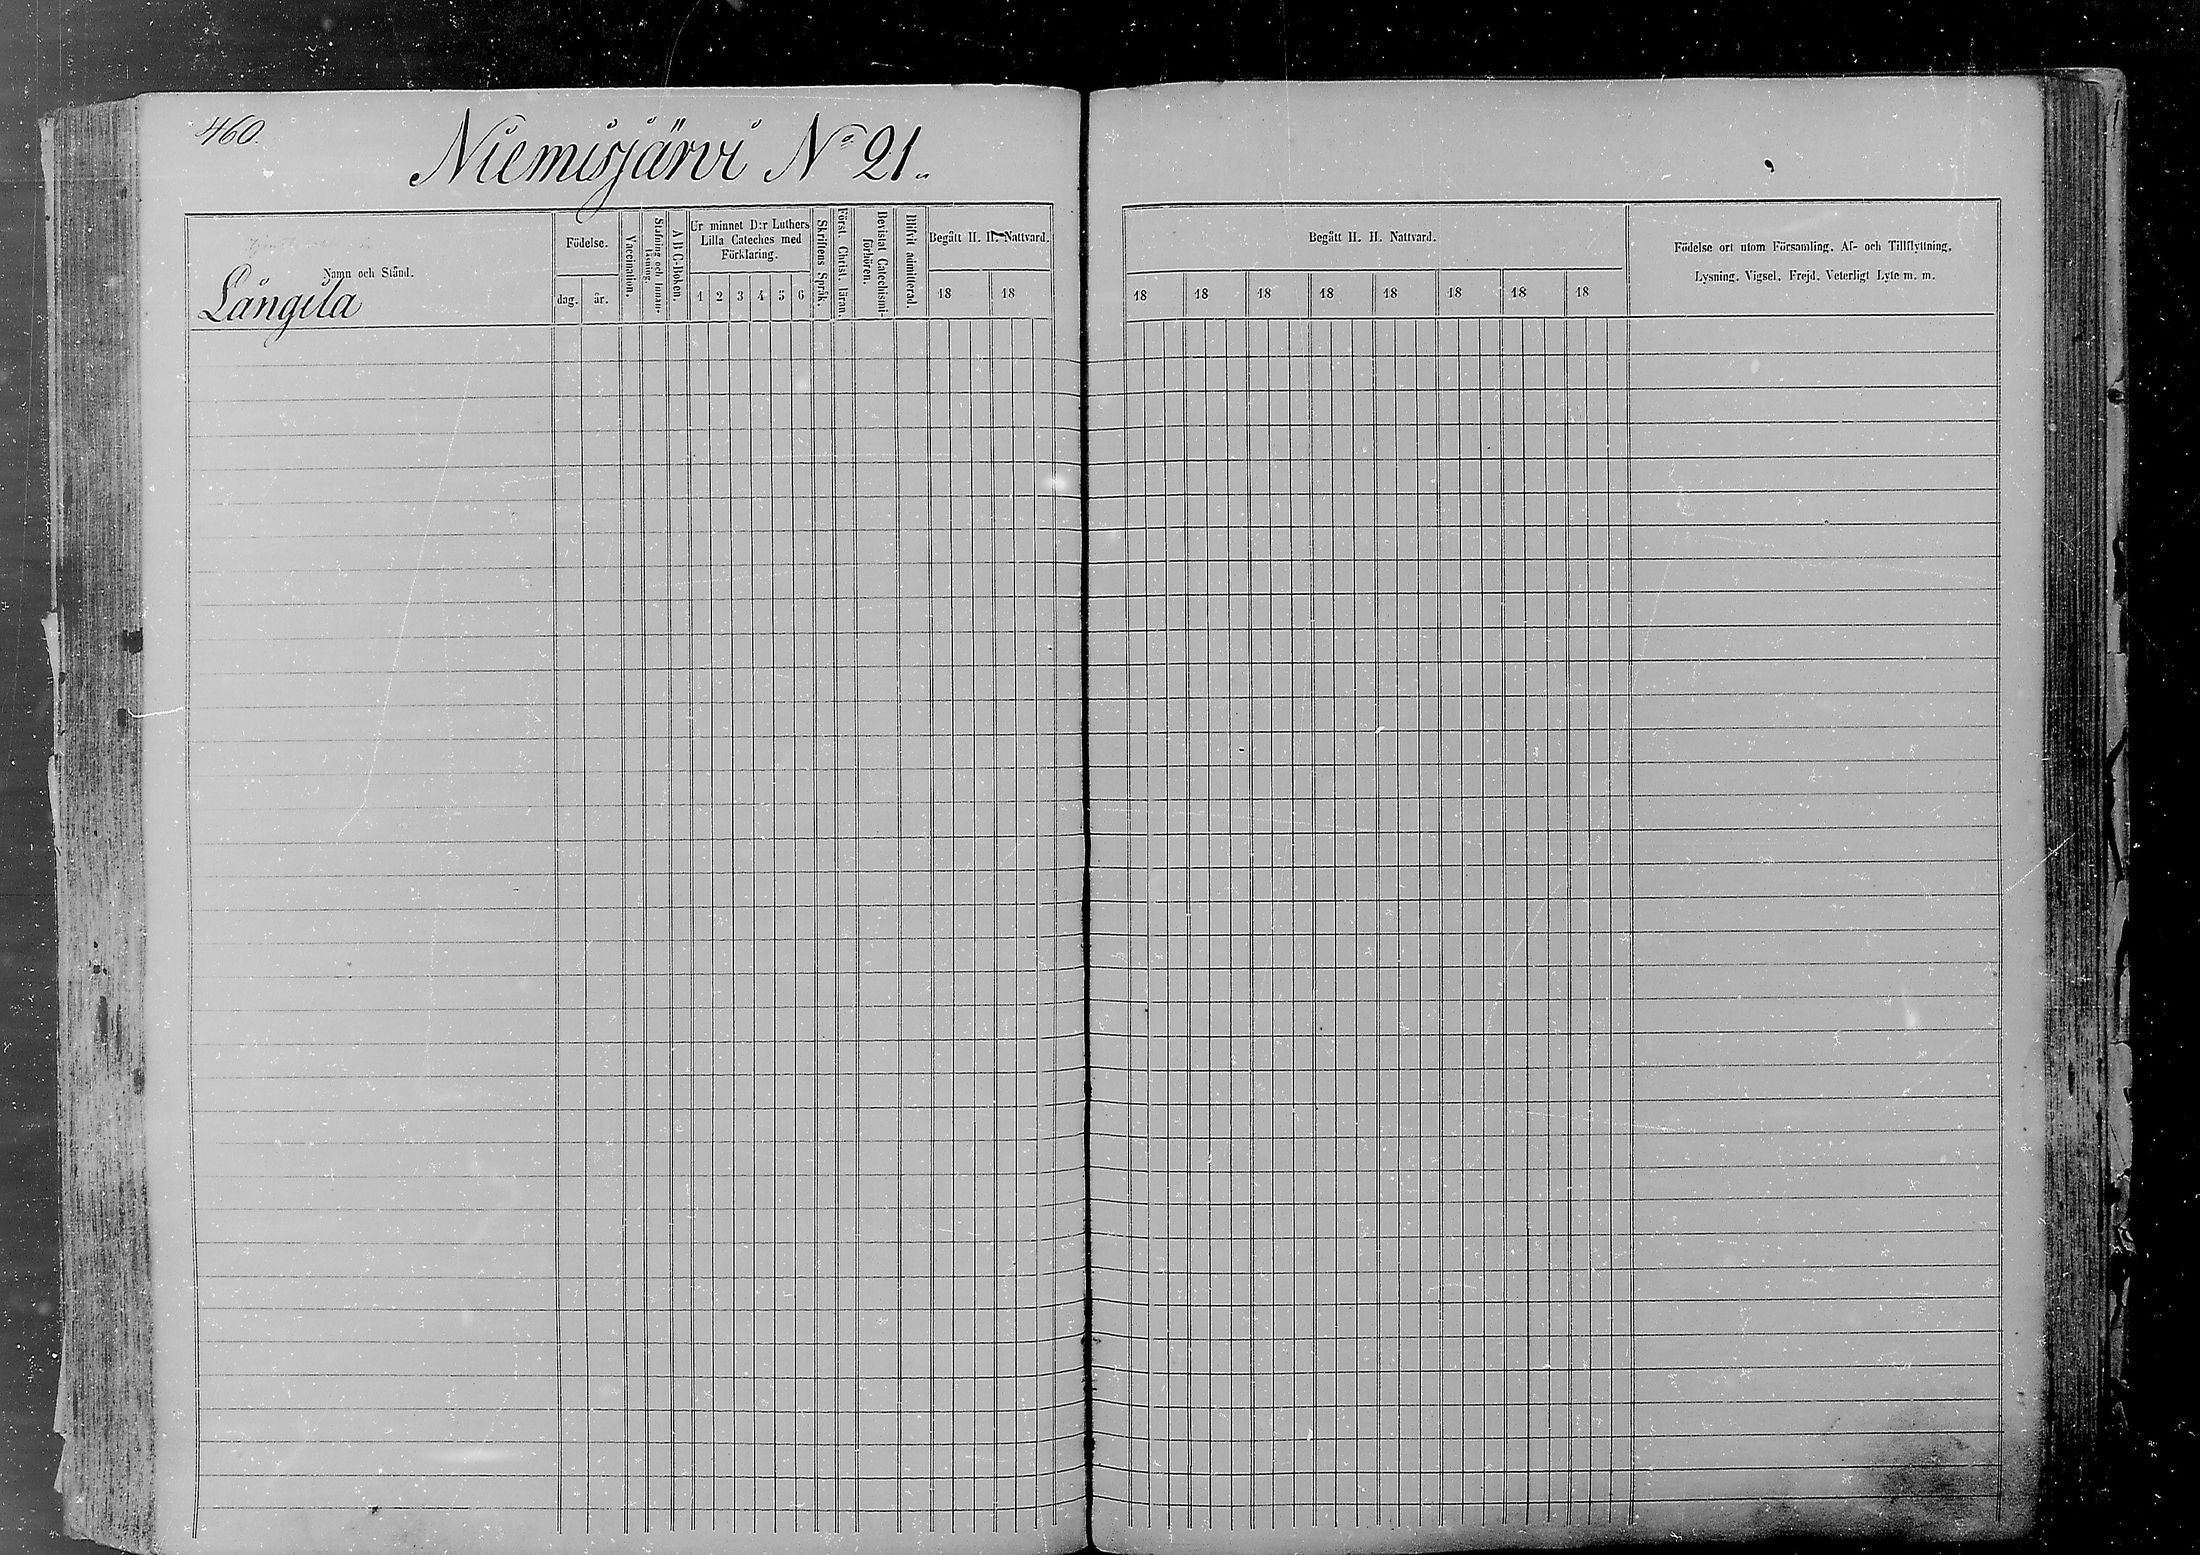 460.
Niemisjärvi No 21.
Namn och Stånd.
Långila
Födelse.
dag.
år.
Vaccination.
Stafning och Innan-
läsning.
A B C-Boken.
Ur minnet D:r Luthers
Lilla Cateches med
Förklaring.
1 2 3 4 5 6
Skriftens Språk.
Först. Christ. läran.
Bevistat Catechismi-
förhören.
Blifvit admitterad.
Begått H. H. Nattvard.
18 18
Begått H. H. Nattvard.
18 18 18 18 18 18 18 18
Födelse ort utom Församling, Af- och Tillflyttning,
Lysning, Vigsel, Frejd, Veterligt Lyte m. m.